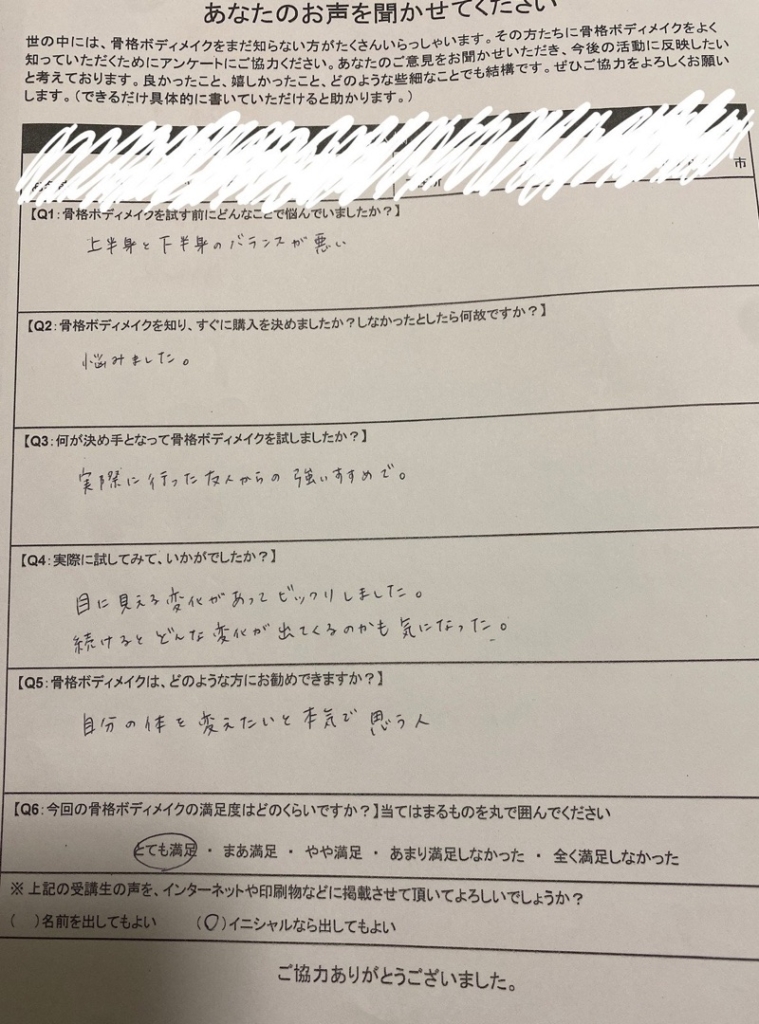 あなたのお声を聞かせてください
世の中には、骨格ボディメイクをまだ知らない方がたくさんいらっしゃいます。その方たちに骨格ボディメイクをよく
知っていただくためにアンケートにご協力ください。あなたのご意見をお聞かせいただき、今後の活動に反映したい
と考えております。良かったこと、嬉しかったこと、どのような些細なことでも結構です。ぜひご協力をよろしくお願い
します。（できるだけ具体的に書いていただけると助かります。）
市
【Q1：骨格ボディメイクを試す前にどんなことで悩んでいましたか？】
上半身と下半身のバランスが悪い
【Q2：骨格ボディメイクを知り、すぐに購入を決めましたか？しなかったとしたら何故ですか？】
悩みました。
【Q3：何が決め手となって骨格ボディメイクを試しましたか？】
実際に行った友人からの強いすすめで。
【Q4：実際に試してみて、いかがでしたか？】
目に見える変化があってビックリしました。
続けるとどんな変化が出てくるのかも気になった。
【Q5：骨格ボディメイクは、どのような方にお勧めできますか？】
自分の体を変えたいと本気で思う人
【Q6：今回の骨格ボディメイクの満足度はどのくらいですか？】当てはまるものを丸で囲んでください
とても満足 ・ まあ満足 ・ やや満足 ・ あまり満足しなかった ・ 全く満足しなかった
※上記の受講生の声を、インターネットや印刷物などに掲載させて頂いてよろしいでしょうか？
（ ）名前を出してもよい （○）イニシャルなら出してもよい
ご協力ありがとうございました。